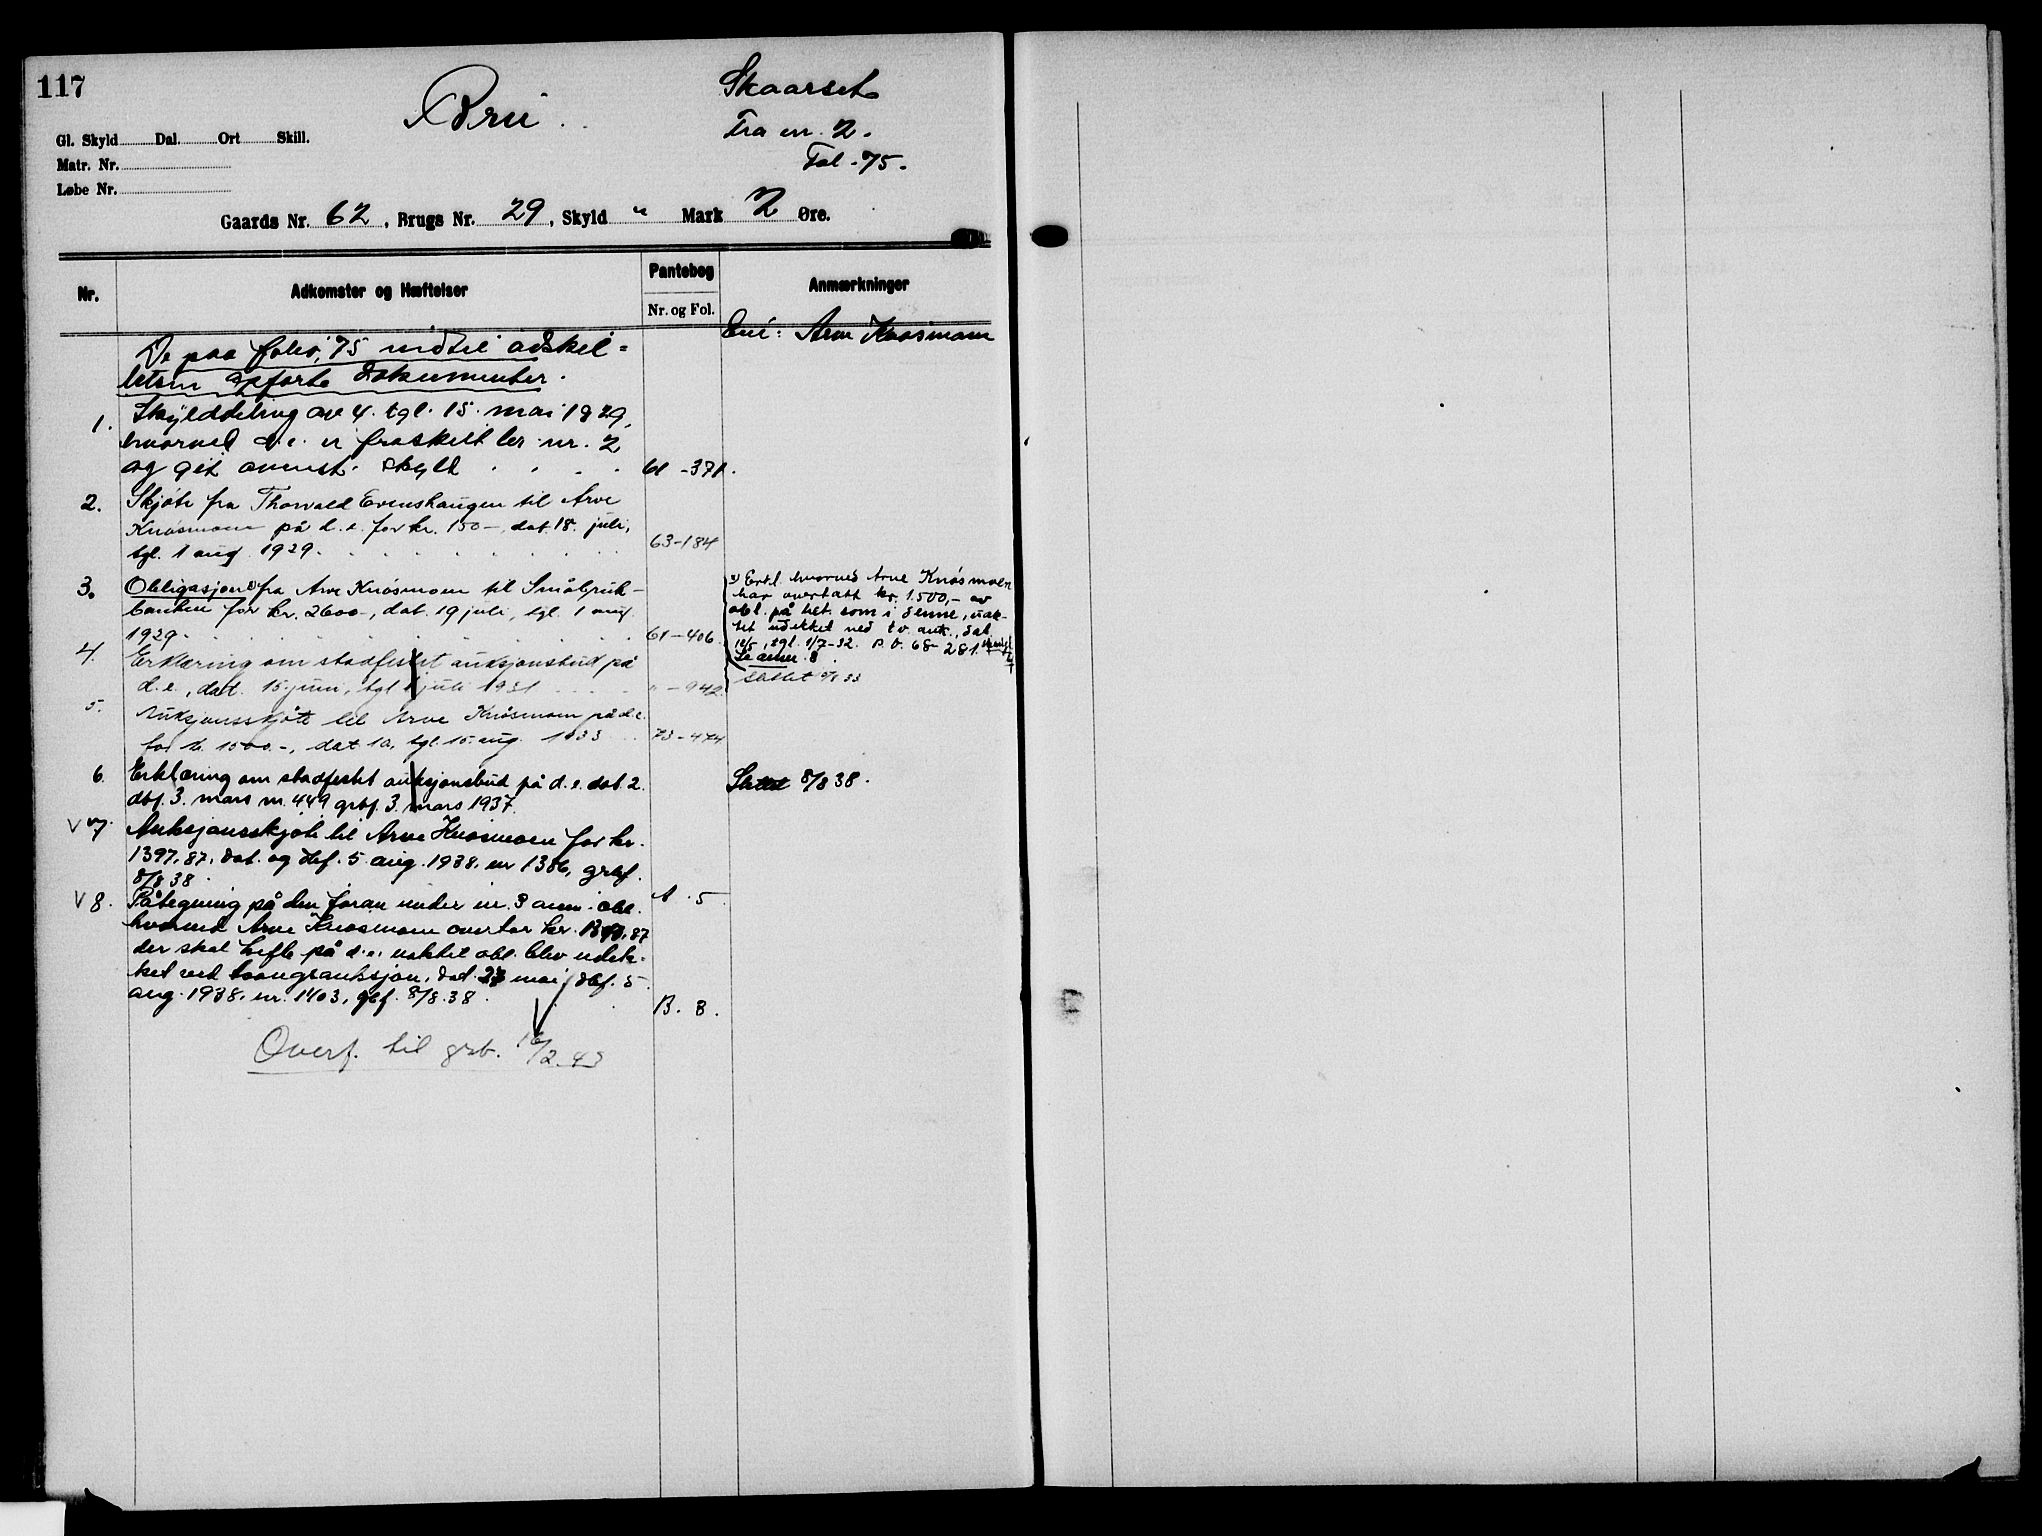 117
Bru.
Skaarset
Fra nr. 2.
Fol. 75.
Gl. Skyld Dal. Ort Skill.
Matr. Nr.
Løbe Nr.
Gaards Nr. 62, Brugs Nr. 29, Skyld " Mark 2 Øre.
Nr. Adkomster og Hæftelser Pantebog Nr. og Fol. Anmærkninger
Eni: Arve Knosmoen
De paa folio 75 indtil adskil=
letsen opførte dokumenter.
1. Skylddeling av 4. tgl. 15. mai 1929,
hvorved d.e. er fraskilt br. nr. 2
og git ovenst. skyld . . . . 61 - 371.
2. Skjøte fra Thorvald Evenshaugen til Arve
Knosmoen på d.e. for kr. 150-, dat. 18. juli,
tgl. 1 aug 1929. 63-184
3. Obligasjon x) fra Arve Knosmoen til Småbruk-
banken for kr. 2600-, dat. 19 juli, tgl. 1 aug.
1929. 61-406.
x) Erkl. hvorved Arve Knosmoen
har overtatt kr. 1.500,- av
obl. på bet. som i denne, uak-
tet udekket ved tv. auk., dat.
12/5, tgl. 1/7-32. P.b. 68-281.
Se anm. 8.
4. Erklæring om stadfestet auksjonsbud på
d.e., dat. 15. juni, tgl 1 juli 1931 " - 942.
Slettet 33
5. Auksjonsskjøte til Arve Knosmoen på d.e.
for kr. 1500.-, dat. 10, tgl. 15. aug. 1933 73-474
6. Erklæring om stadfestet auksjonsbud på d.e. dat. 2.
dbf. 3. mars nr. 449 grbf. 3. mars 1937.
Slettet 8/8 38.
V 7. Auksjonsskjøte til Arve Knosmoen for kr.
1397,87, dat. og dbf. 5. aug. 1938, nr 1386, grbf.
8/8 38. A. 5.
V 8. Påtegning på den foran under nr. 3 anm. obl.
hvorved Arve Knosmoen overtar kr. 87
der skal hefte på d.e. uaktet obl. blev udek-
ket ved tvangsauksjon, dat. 23 mai, dbf. 5.
aug. 1938, nr. 1403, gbf. 8/8. 38. B. 8.
Overf. til grb. 16/2.43